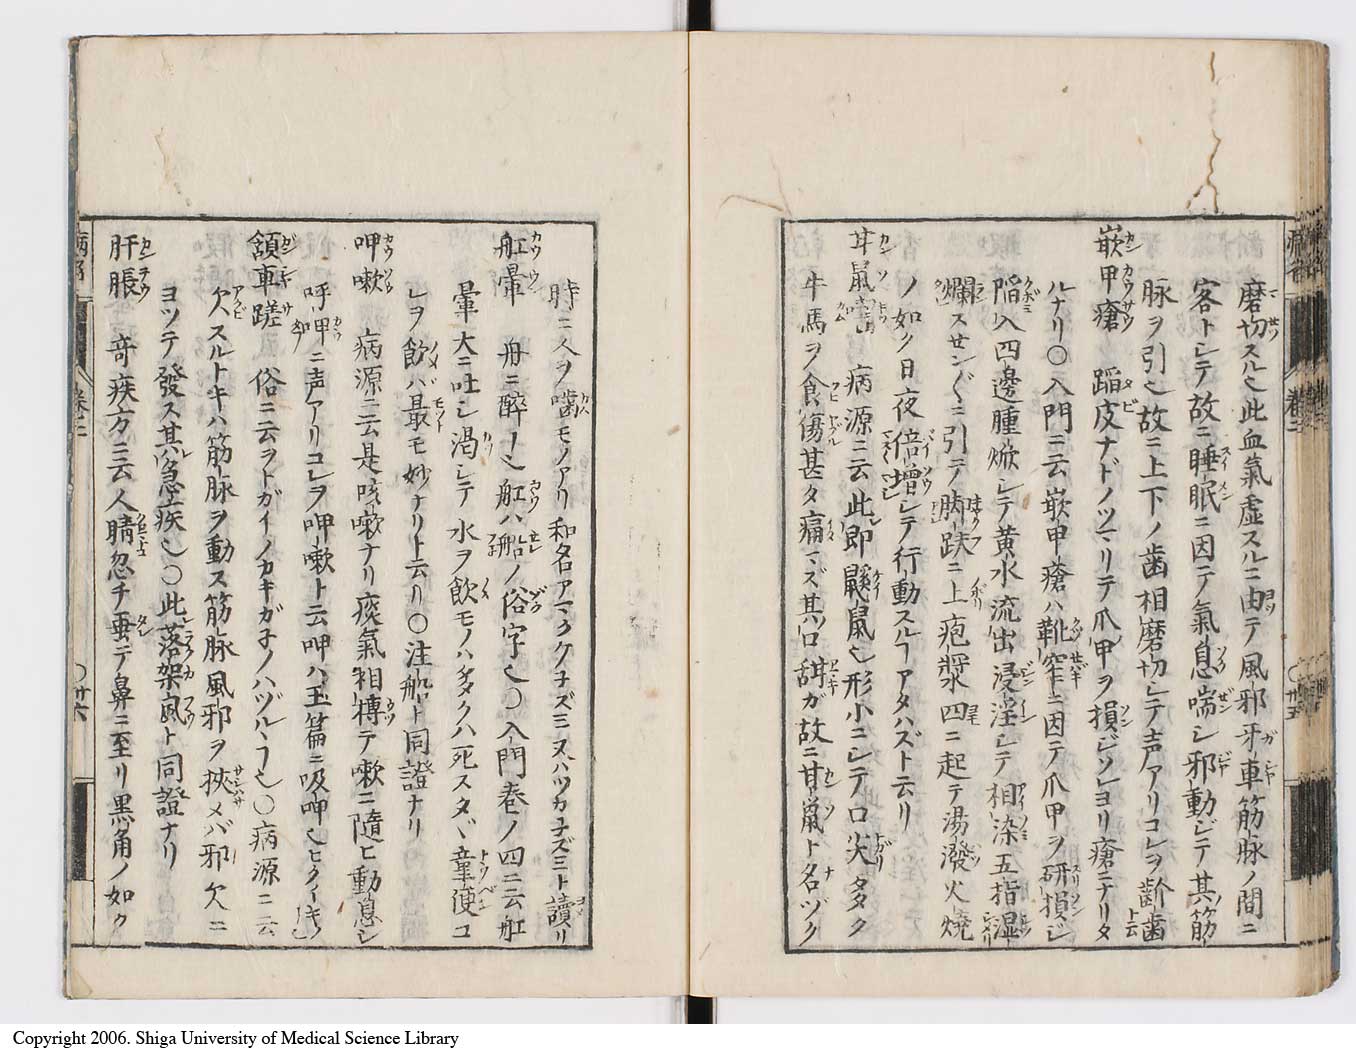 磨切スル也此血氣虚スルニ由テ風邪牙車筋脉ノ間ニ
客トシテ故ニ睡眠ニ因テ氣息喘シ邪動シテ其筋
脉ヲ引也故ニ上下ノ歯相磨切シテ声アリコレヲ齘歯ト云
嵌甲瘡 蹈皮ナドノツマリテ爪甲ヲ損ジソレヨリ瘡ニナリタ
ルナリ〇入門ニ云嵌甲瘡ハ靴窄ニ因テ爪甲ヲ研損ジ
陷入四邊腫焮シテ黄水流出浸淫シテ相染五指湿
爛スセンぐニ引テ趺ニ上疱漿四ニ起テ湯潑火燒
ノ如ク日夜倍増シテ行動スルヿアタハズト云リ
甘鼠 病源ニ云此即鼷鼠也形小ニシテ口尖タタク
牛馬ヲ食傷甚タ痛マズ其口甜ガ故ニ甘鼠ト名ヅク
時ニ人ヲ噛モノアリ和名アマクチネズミ又ハツカネズミト讀リ
舡暈 舟ニ醉ヿ也舡ハ船ノ俗字也〇入門巻ノ四ニ云舡
暈大ニ吐シ渇シテ水ヲ飲モノハ多クハ死スタヾ童便コ
レヲ飲バ最モ妙ナリト云リ〇注船ト同證ナリ
呷嗽 病源ニ云是咳嗽ナリ痰氣相搏テ嗽ニ隨ヒ動息シ
呼呷ニ声アリコレヲ呷嗽ト云呷ハ玉篇ニ吸呷也
頷車蹉 俗ニ云ヲトガイノカキガネノハヅルヽヿ也〇病源ニ云
欠スルトキハ筋脉ヲ動ス筋脉風邪ヲ挾メバ邪欠ニ
ヨツテ發ス其急疾也〇此落架風ト同證ナリ
肝脹 奇疾方ニ云人睛忽チ垂テ鼻ニ至リ黒角ノ如ク
巻二
〇廿五
巻二
〇廿六
Copyright 2006. Shiga University of Medical Science Library